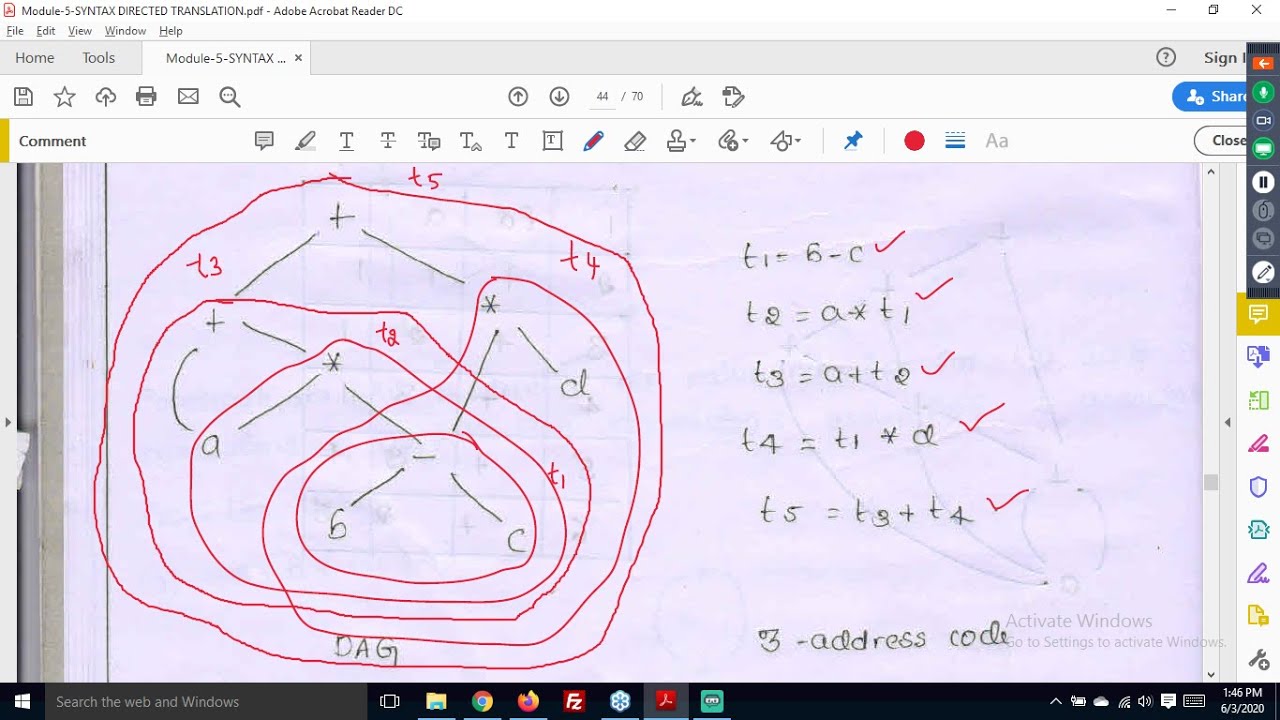 Module-5-SYNTAX DIRECTED TRANSLATION.pdf - Adobe Acrobat Reader DC
File Edit View Window Help
Home Tools Module-5-SYNTAX ... × Sign
44 / 70 Share
Comment Aa Close
t5
+
t3 t4
+ *
t2
* d
a
-
t1
b c
DAG
t1 = b - c
t2 = a * t1
t3 = a + t2
t4 = t1 * d
t5 = t3 + t4
3-address code
Activate Windows
Go to Settings to activate Windows.
Search the web and Windows
1:46 PM
6/3/2020